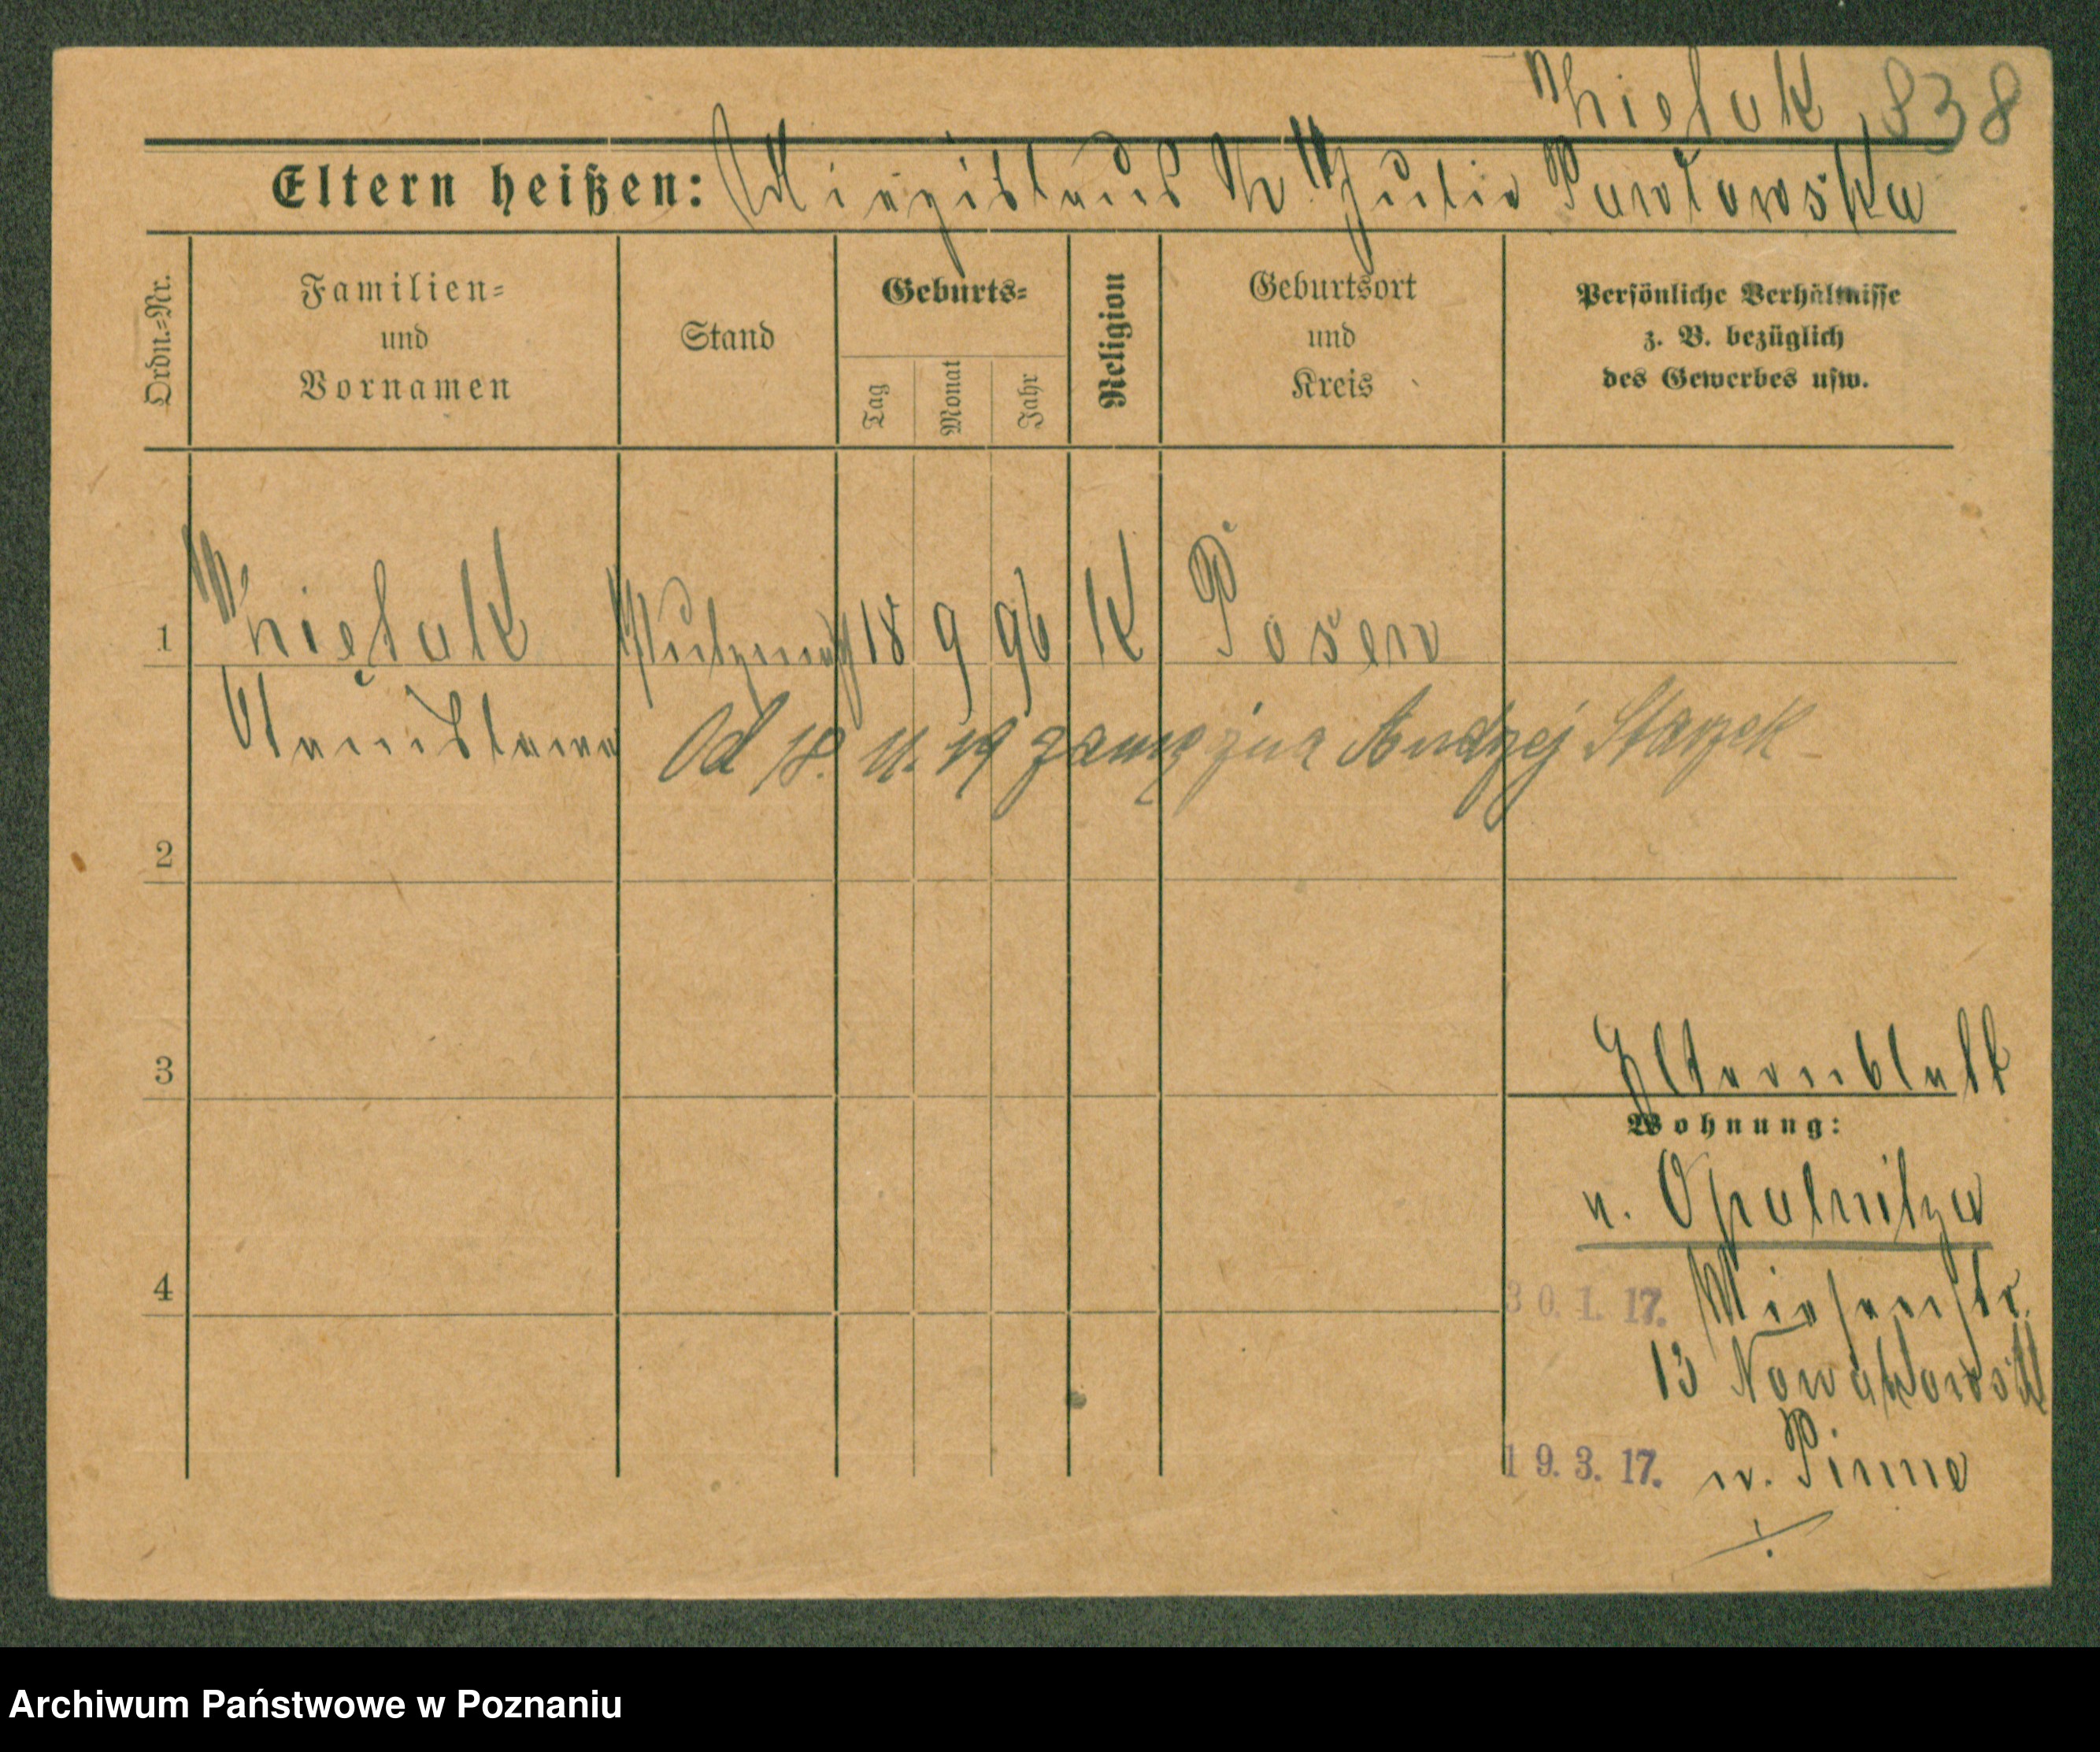 Thielak 838
Eltern heißen: Miezislaus Th u Julia Pawlowska
Ordn.-Nr.
Familien-
und
Vornamen
Stand
Geburts-
Tag
Monat
Jahr
Religion
Geburtsort
und
Kreis
Persönliche Verhältnisse
z. B. bezüglich
des Gewerbes usw.
1 18 9 96 K Posen
Od 18. 11. 19 Andrzej
2
3
Elternblatt
Wohnung:
v. Opalenitza
4
30. 1. 17. Wiesenstr.
13
19. 3. 17. n. Pinne
Archiwum Państwowe w Poznaniu